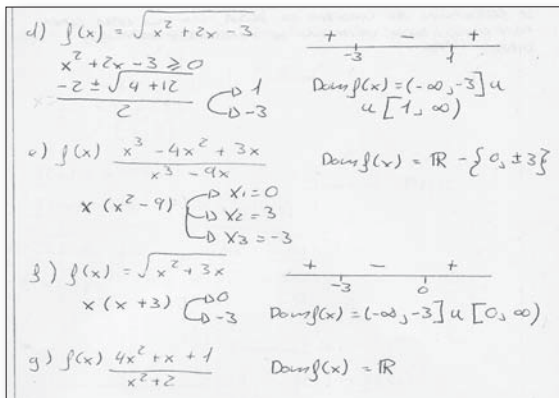 d) f(x) = √(x² + 2x - 3)
x² + 2x - 3 ≥ 0
(-2 ± √(4 + 12))/2 → 1
→ -3
+ - +
-3 1
Dom f(x) = (-∞, -3] u
u [1, ∞)
e) f(x) (x³ - 4x² + 3x)/(x³ - 9x)
Dom f(x) = ℝ - {0, ±3}
x (x² - 9) → x₁ = 0
→ x₂ = 3
→ x₃ = -3
f) f(x) = √(x² + 3x)
x (x + 3) → 0
→ -3
+ - +
-3 0
Dom f(x) = (-∞, -3] u [0, ∞)
g) f(x) (4x² + x + 1)/(x² + 2)
Dom f(x) = ℝ